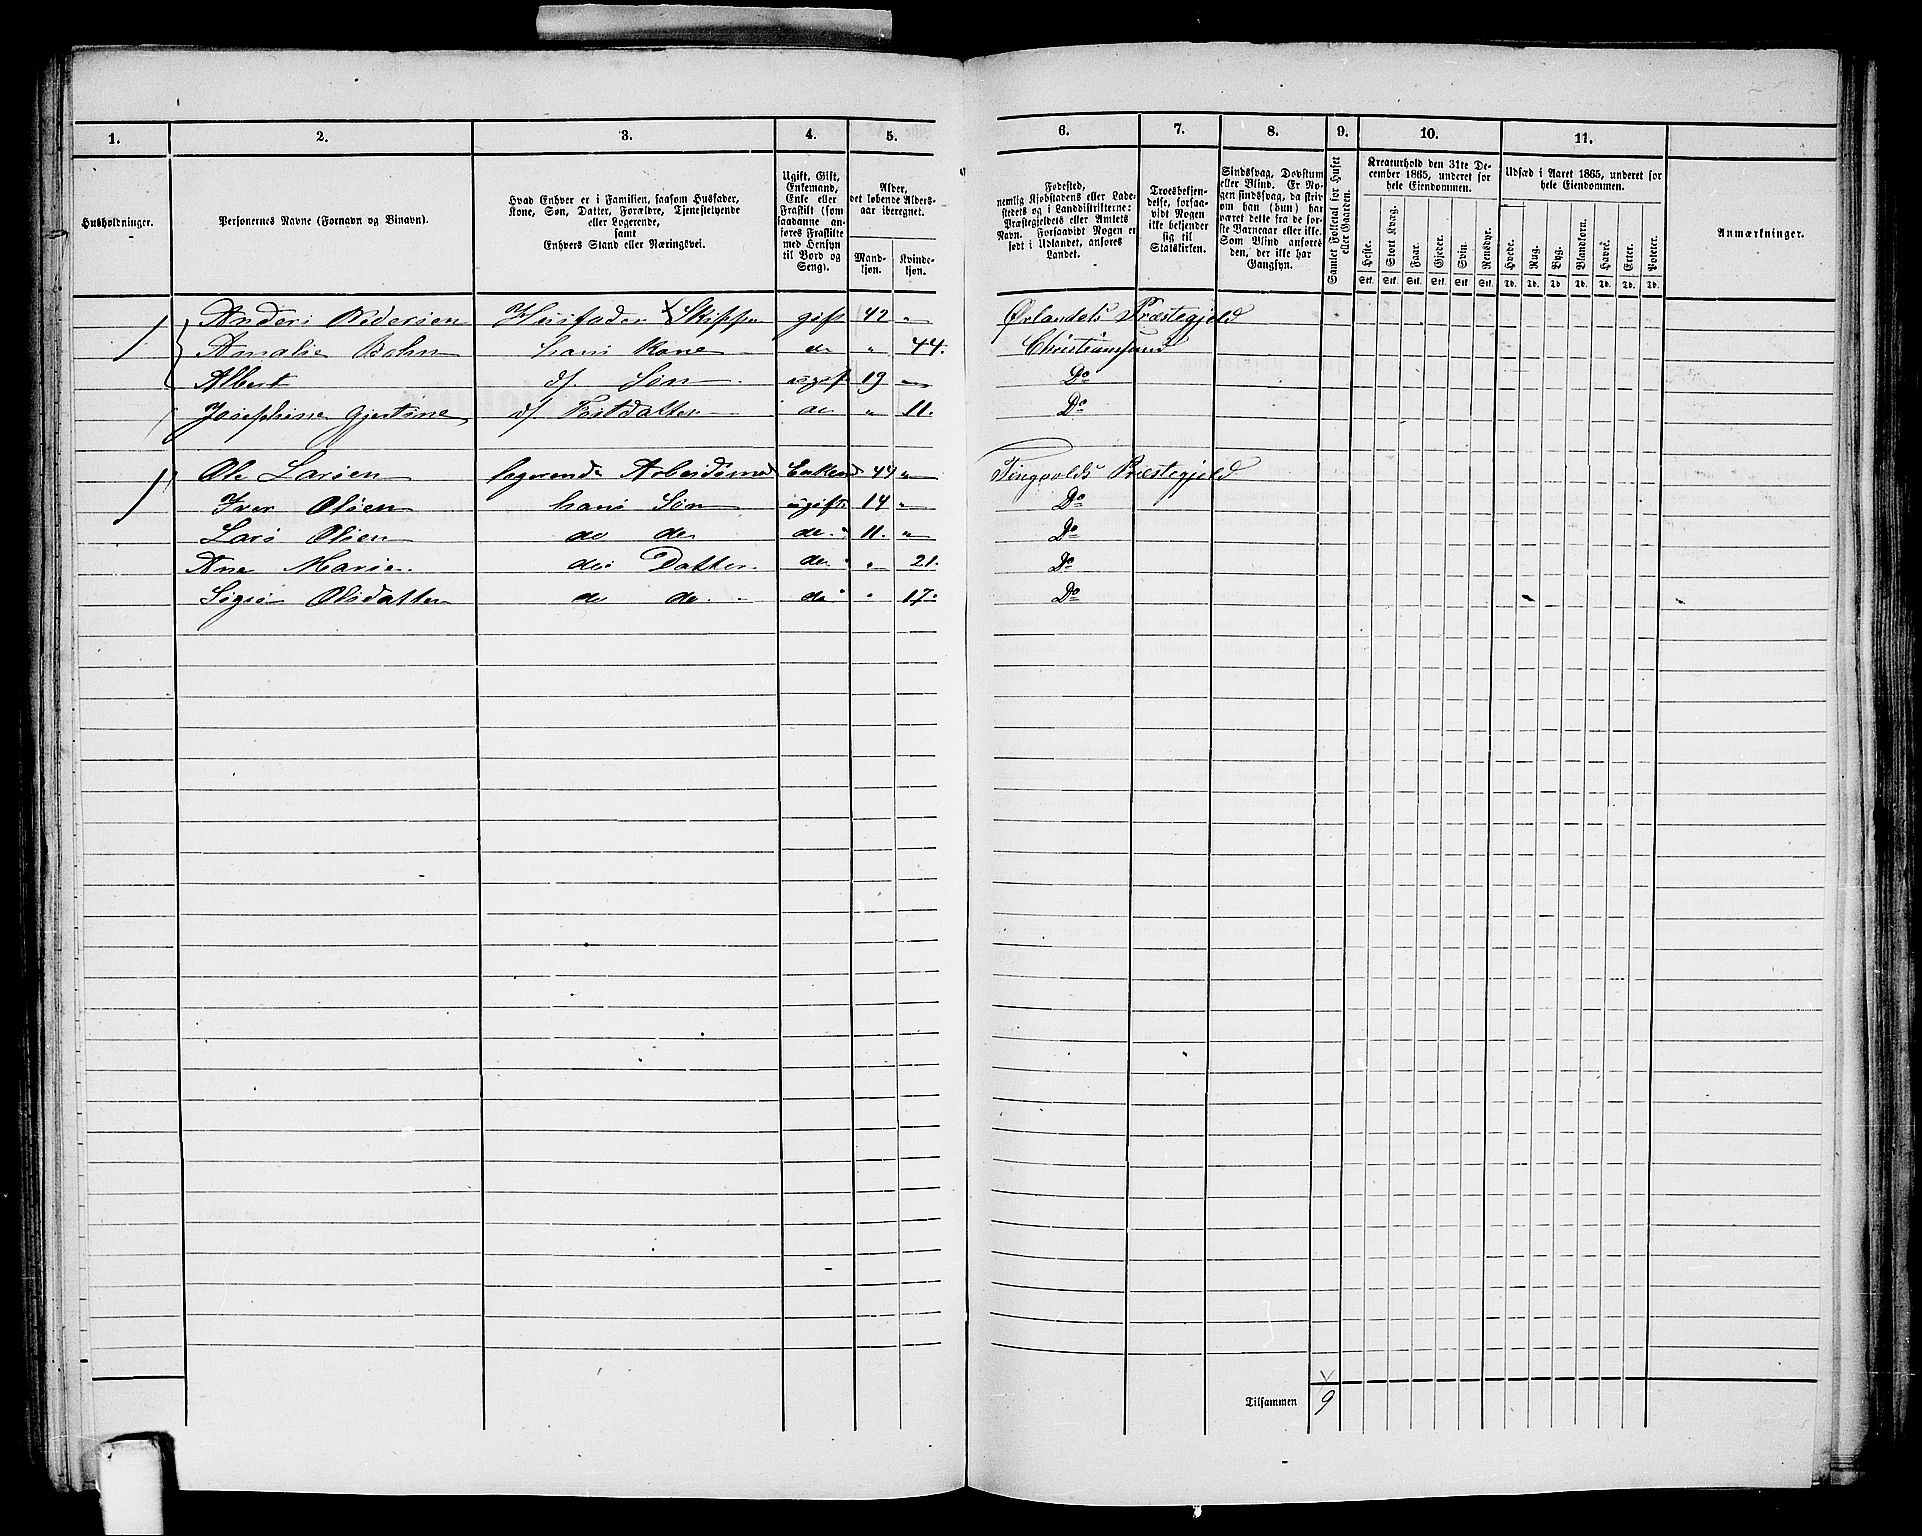 1. 2. 3. 4. 5. 6. 7. 8. 9. 10. 11.
Husholdninger.
Personernes Navne (Fornavn og Binavn).
Hvad Enhver er i Familien, saasom Husfader,
Kone, Søn, Datter, Forældre, Tjenestetyende
eller Logerende,
samt
Enhvers Stand eller Næringsvei.
Ugift, Gift,
Enkemand,
Enke eller
Fraskilt (som
saadanne an-
føres Fraskilte
med Hensyn
til Bord og
Seng).
Alder,
det løbende Alders-
aar iberegnet.
Mand-
kjøn.
Kvinde-
kjøn.
Fødested,
nemlig Kjøbstadens eller Lade-
stedets og i Landdistrikterne:
Præstegjeldets eller Amtets
Navn. Forsaavidt Nogen er
født i Udlandet, anføres
Landet.
Troesbekjen-
delse, forsaa-
vidt Nogen
ikke bekjender
sig til
Statskirken.
Sindssvag, Døvstum
eller Blind. Er No-
gen sindssvag, da skriv
om han (hun) har
været dette fra de før-
ste Barneaar eller ikke.
Som Blind anføres
den, der ikke har
Gangsyn.
Samlet Folketal for Huset
eller Gaarden.
Kreaturhold den 31te De-
cember 1865, underet for
hele Eiendommen.
Heste. Stort Kvæg. Faar. Gjeder. Svin. Rensdyr.
Stk. Stk. Stk. Stk. Stk. Stk.
Udsæd i Aaret 1865, underet for
hele Eiendommen.
Hvede. Rug. Byg. Blandkorn. Havre. Erter. Poteter.
Td. Td. Td. Td. Td. Td. Td.
Anmærkninger.
1 Anders Pedersen Husfader Skipper gift 42 " Ørlandets Præstegjeld
Amalie Bohn hans Kone do " 44. Christianssund
Albert d/ Søn ugift 19 " Do
Josephine Gjertine d/ Postdatter do " 11. Do
1 Ole Larsen logerende Arbeidsmd Enkemd 44 " Tingvolds Præstegjeld
Iver Olsen hans Søn ugift 14 " Do
Lars Olsen do do do 11. " Do
Ane Marie do Datter do " 21. Do
Olsdatter do do do " 17. Do
Tilsammen 9